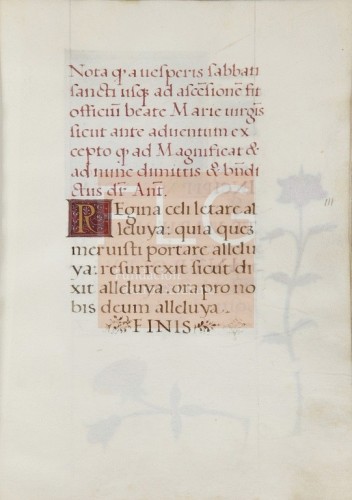 Nota q̃ a vesperis sabbati
sancti usq̃ ad ascẽsionẽ fit
officiũ beate Marie virgis
sicut ante adventum ex
cepto q̃ ad Magnificat &
ad nunc dimittis & bndi
ctus dr̃ Añt.
REgina celi letare al
leluya: quia quez
meruisti portare allelu
ya: resurrexit sicut di
xit alleluya. ora pro no
bis deum alleluya.
FINIS
FLG